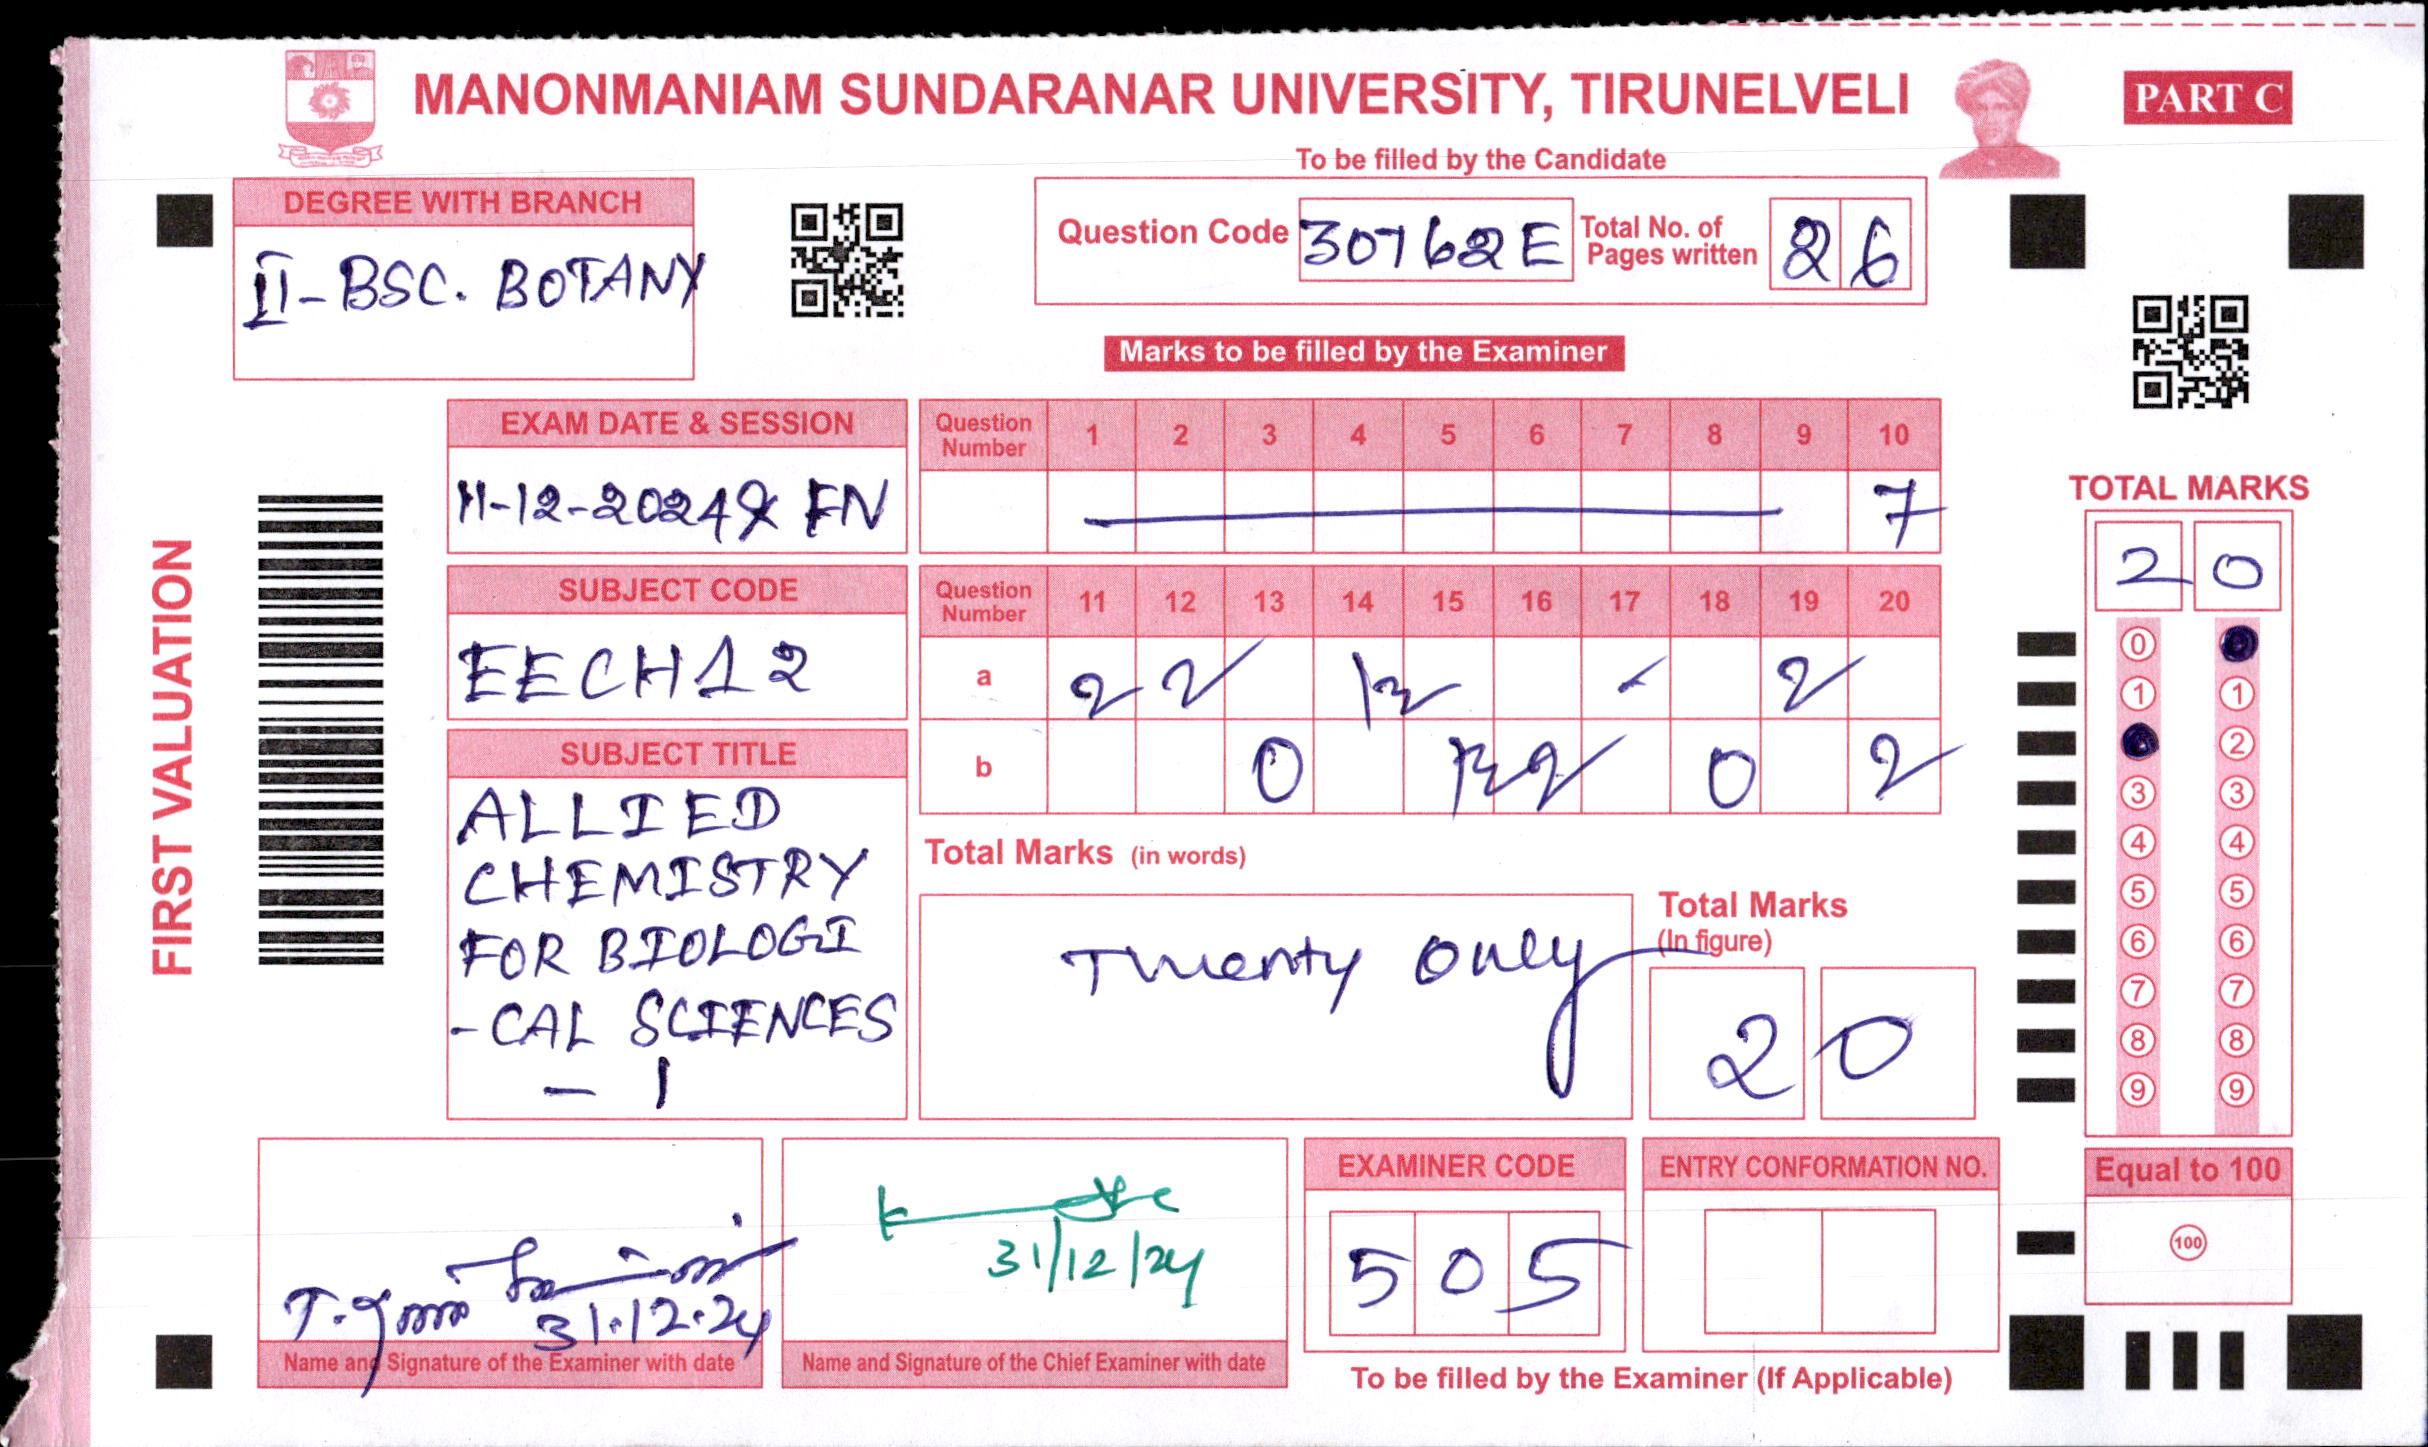 MANONMANIAM SUNDARANAR UNIVERSITY, TIRUNELVELI
PART C
To be filled by the Candidate
DEGREE WITH BRANCH
II - BSC. BOTANY
Question Code 30762E Total No. of Pages written 26
Marks to be filled by the Examiner
FIRST VALUATION
EXAM DATE & SESSION
11-12-2024 FN
SUBJECT CODE
EECH12
SUBJECT TITLE
ALLIED
CHEMISTRY
FOR BIOLOGI
-CAL SCIENCES
- 1
Question Number 1 2 3 4 5 6 7 8 9 10
7
Question Number 11 12 13 14 15 16 17 18 19 20
a 2 2 - 2
b 0 2 0 2
Total Marks (in words)
Twenty Only
Total Marks
(In figure)
20
TOTAL MARKS
20
0
1 1
2
3 3
4 4
5 5
6 6
7 7
8 8
9 9
Equal to 100
100
31.12.24
Name and Signature of the Examiner with date
31/12/24
Name and Signature of the Chief Examiner with date
EXAMINER CODE
505
ENTRY CONFORMATION NO.
To be filled by the Examiner (If Applicable)